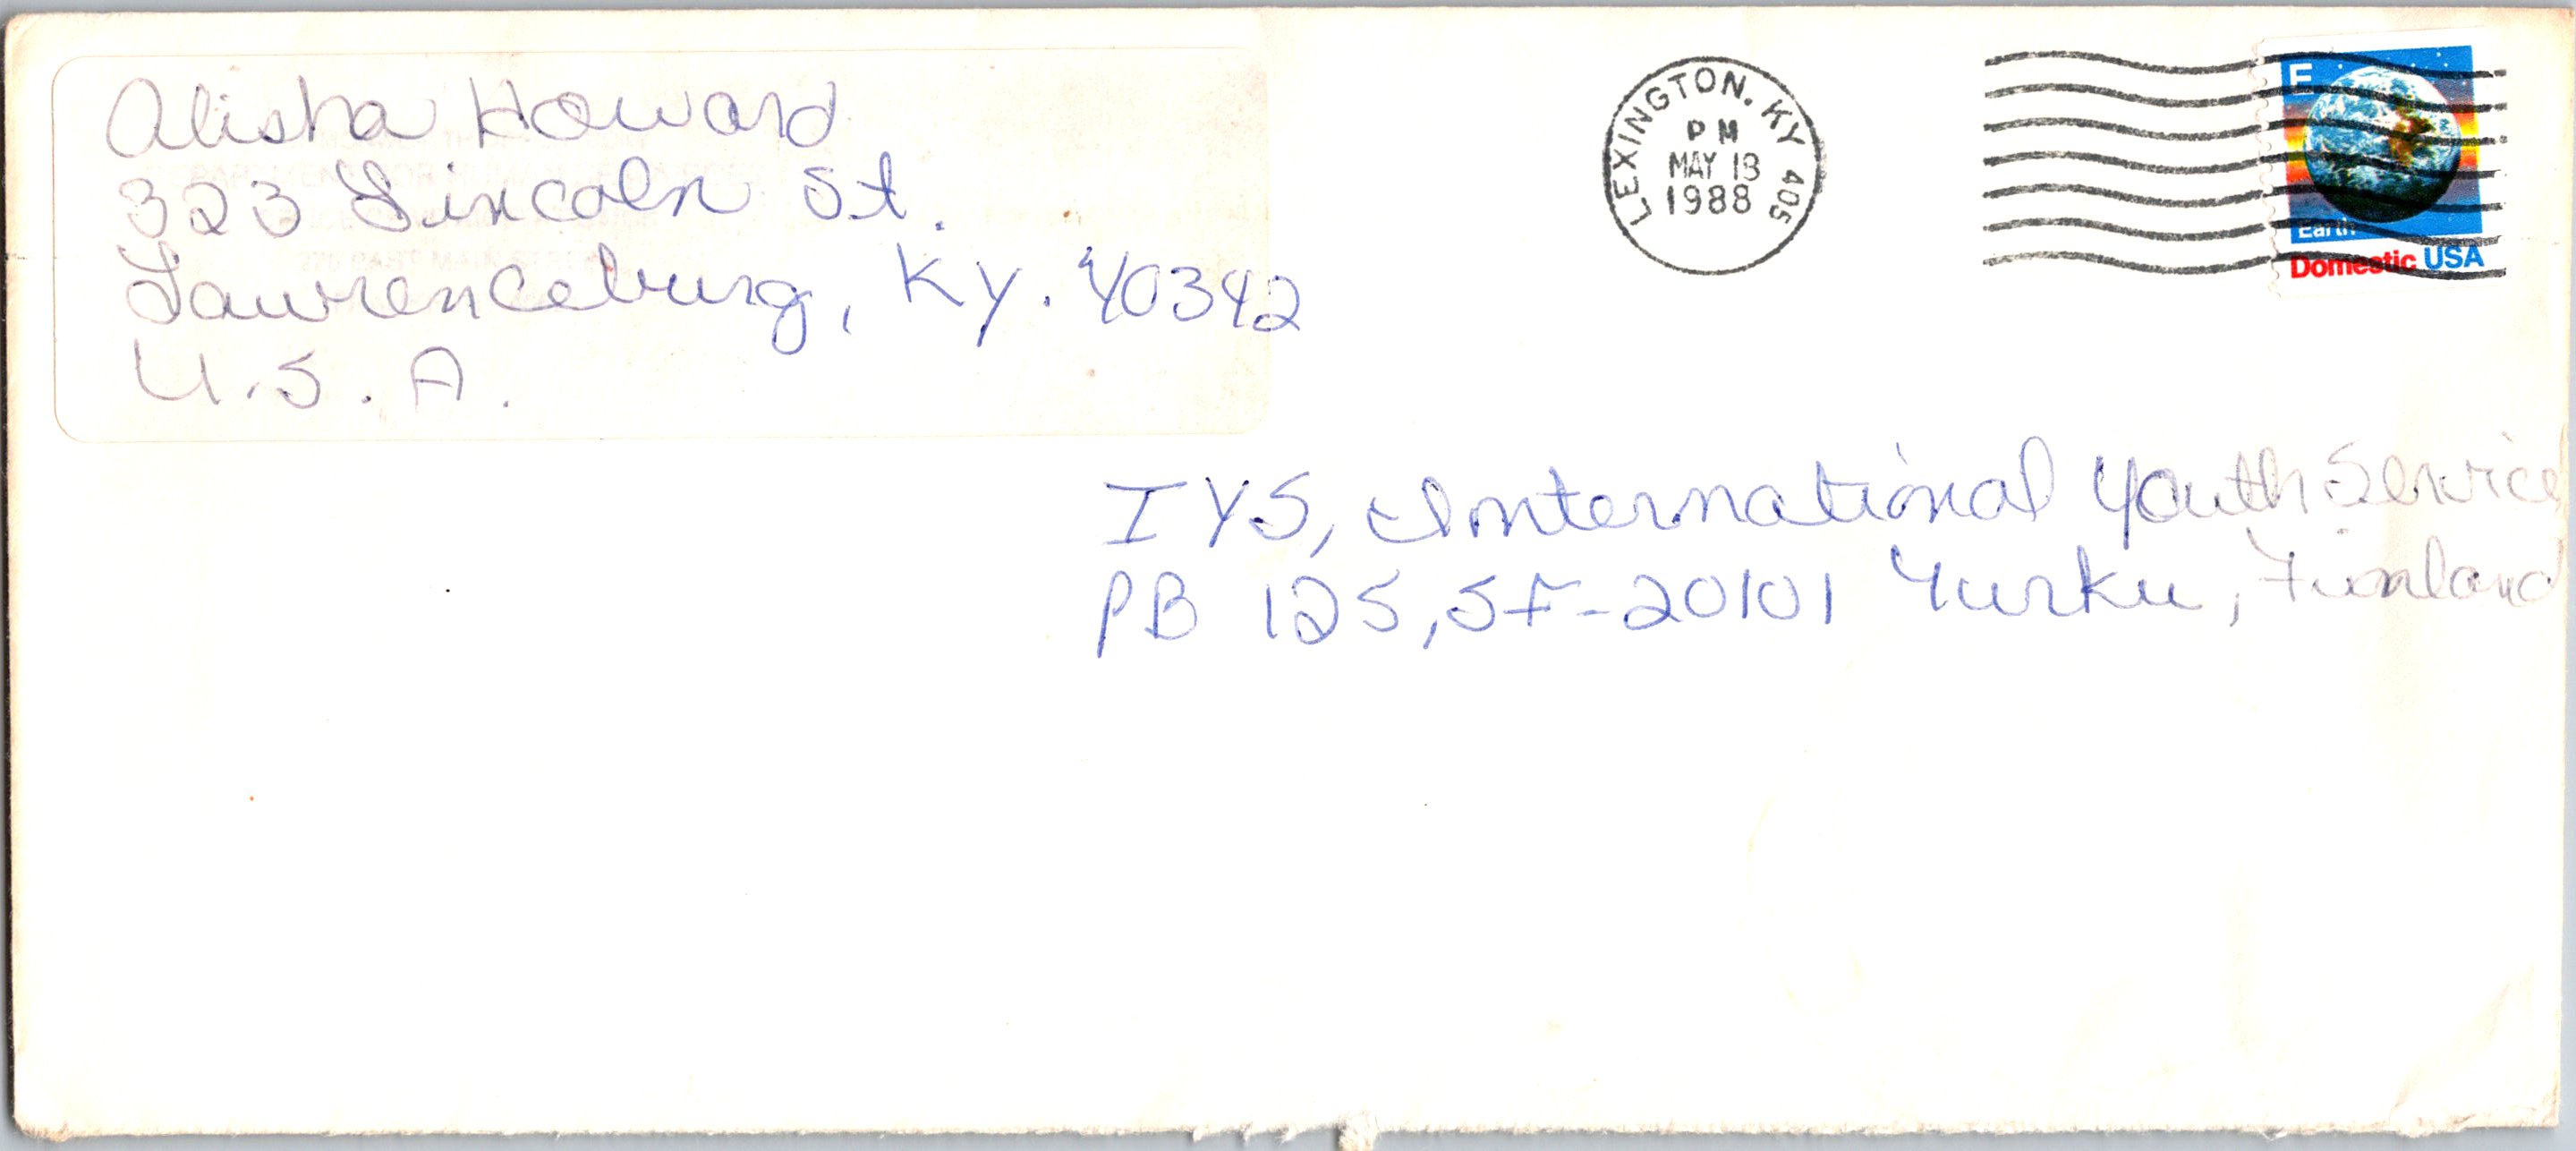 Alisha Howard
323 Lincoln St.
Lawrenceburg, Ky. 40342
U.S.A.
LEXINGTON, KY 405
PM
MAY 13
1988
E
Earth
Domestic USA
IYS, International Youth Service
PB 125, SF-20101 Turku, Finland